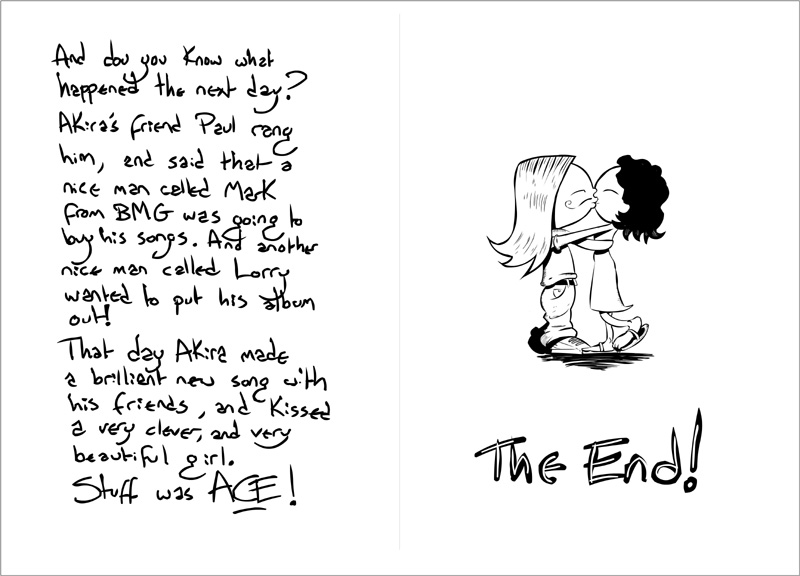 And dou you know what
happened the next day?
Akira's friend Paul rang
him, and said that a
nice man called Mark
from BMG was going to
buy his songs. And another
nice man called Lorry
wanted to put his album
out!
That day Akira made
a brilliant new song with
his friends, and kissed
a very clever, and very
beautiful girl.
Stuff was ACE!
The End!